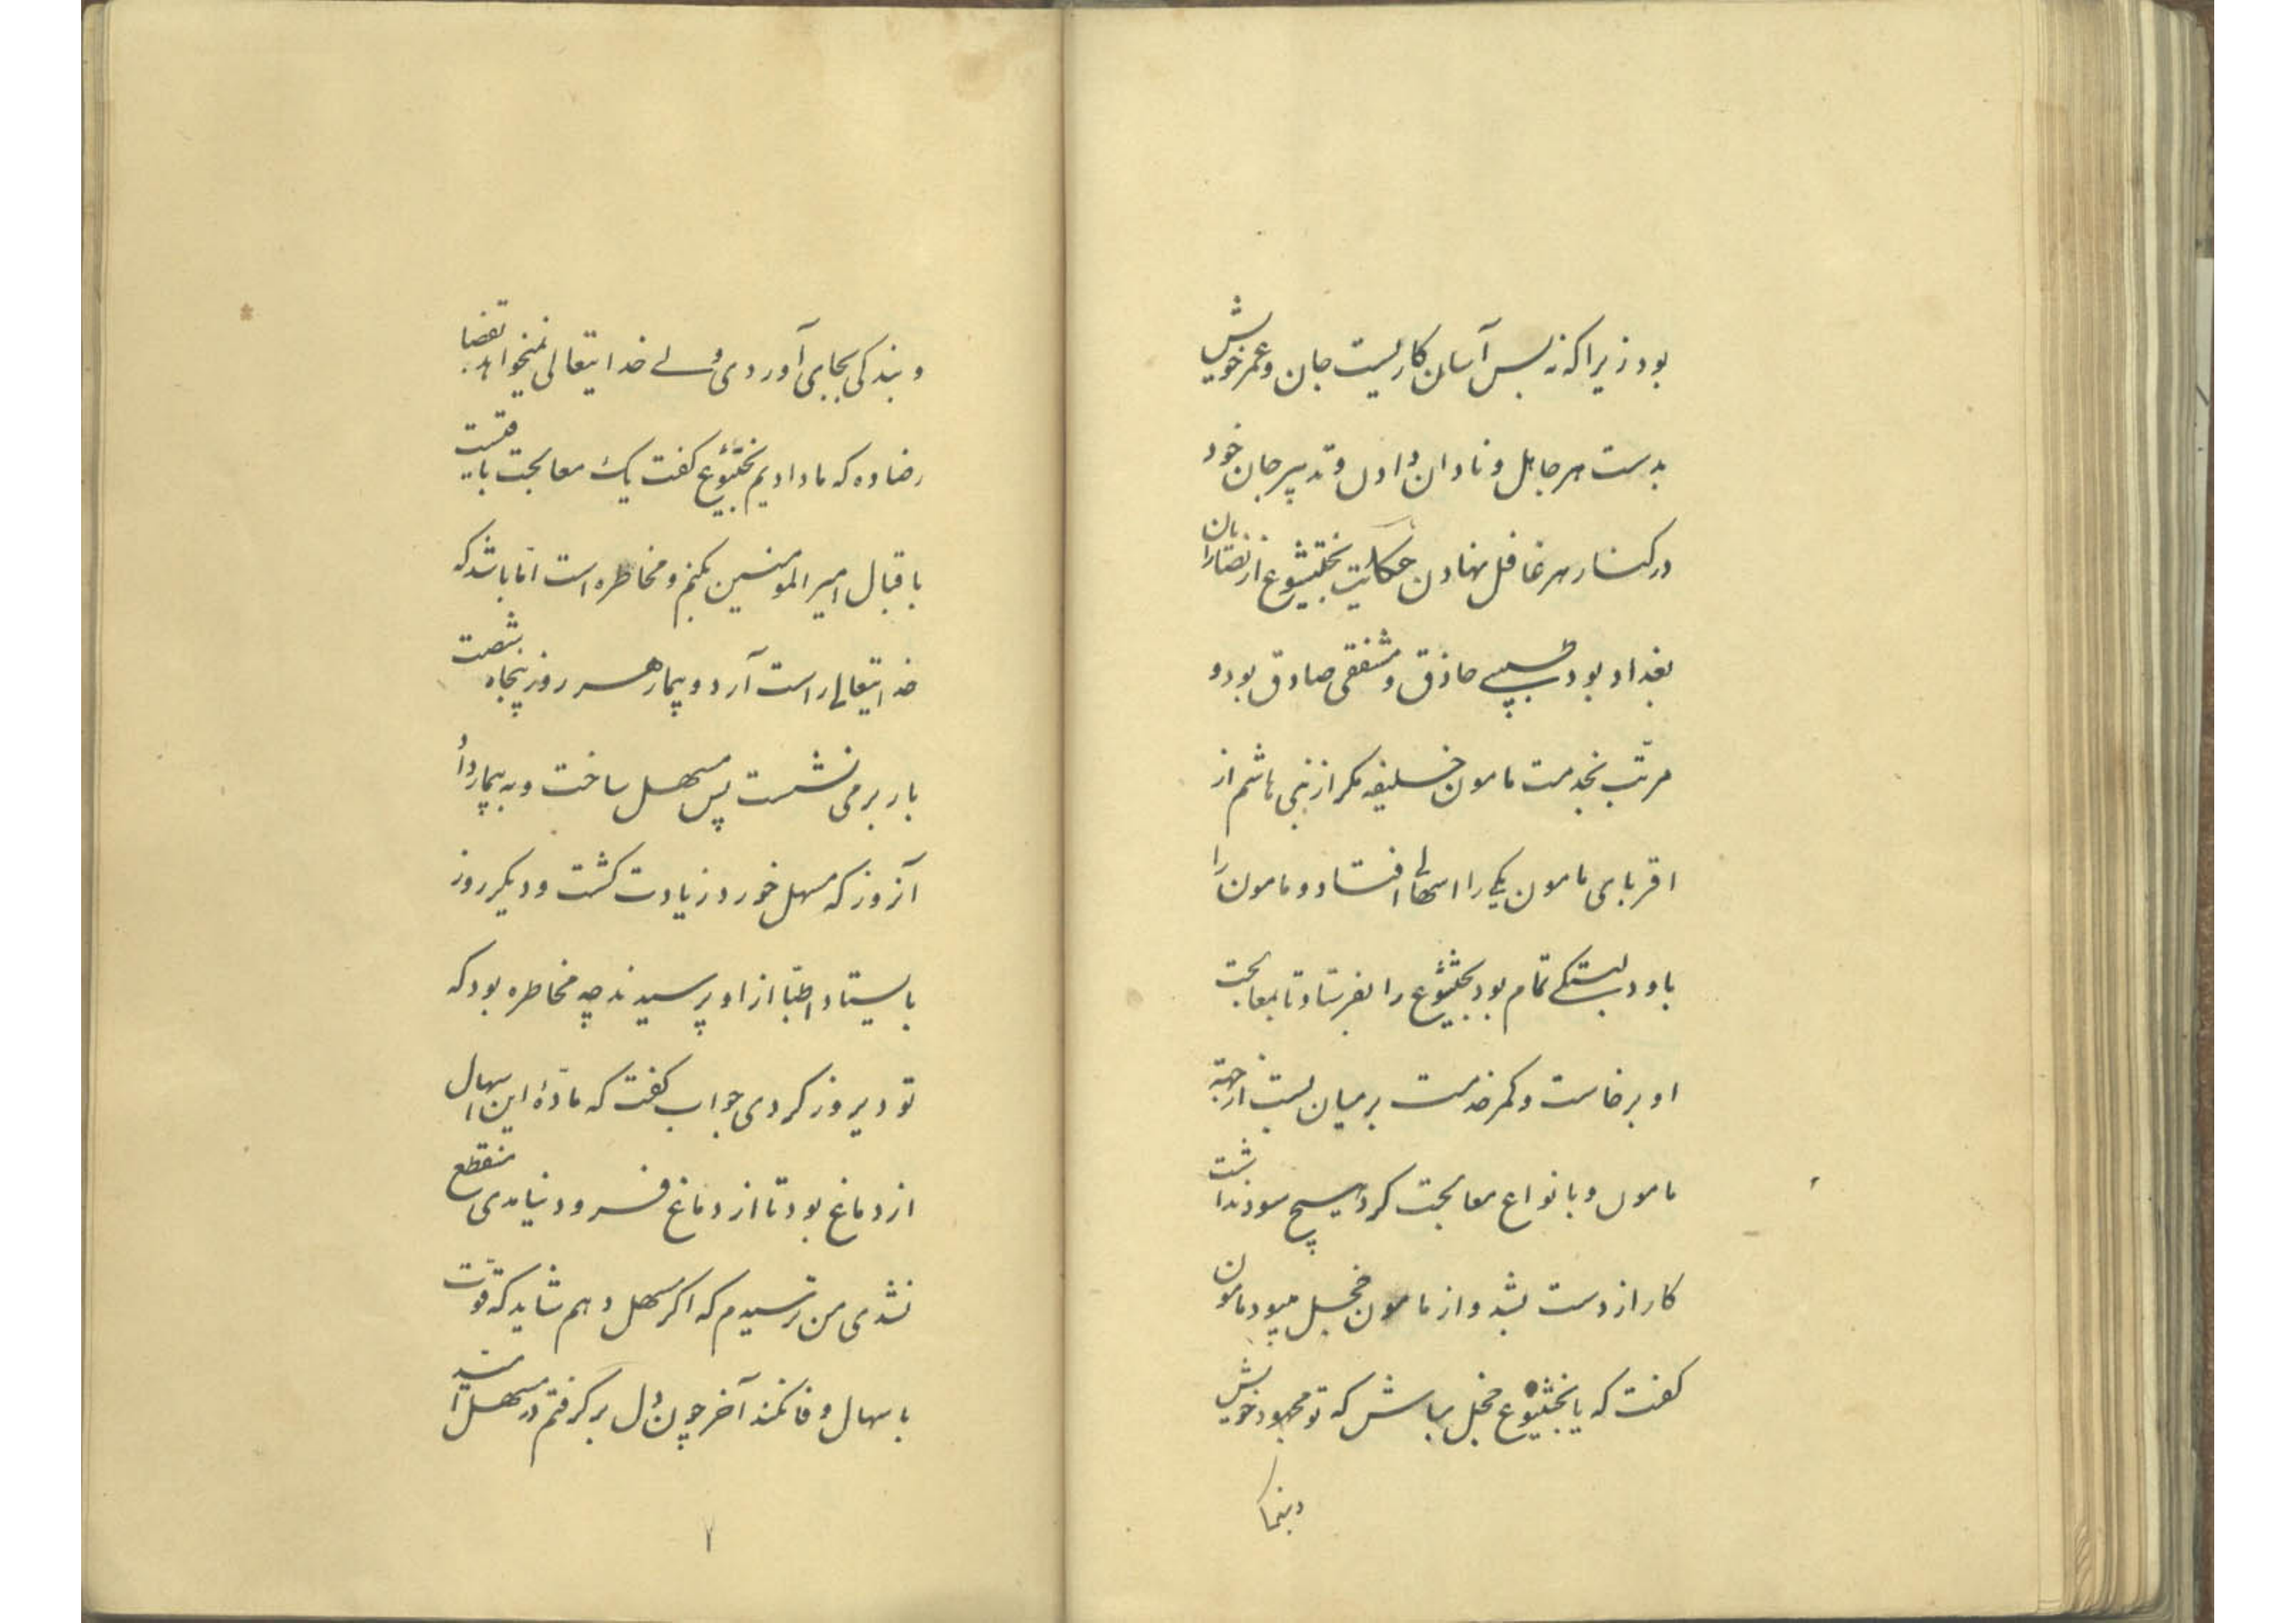 بود زیرا که نه بس آسان کاریست جان و عمر خویش
بدست هر جاهل و نادان دادن و تدبیر جان خود
در کنار هر غافل نهادن حکایت بختیشوع از نصارای
بغداد بود طبیبی حاذق و مشفقی صادق بود و
مرتّب بخدمت مامون خلیفه مکر از بنی هاشم از
اقربای مامون یکی را اسهالی افتاد و مامون را
باو دلبستکی تمام بود بختیشوع را بفرستاد تا معالجت
او برخاست و کمر خدمت بر میان بست از جهة
مامون و بانواع معالجت کرد هیچ سود نداشت
کار از دست بشد و از مامون خجل میبود مامون
کفت که یا بختیشوع خجل مباش که تو مجهود خویش
و بندکی بجای آوردی ولی خدایتعالی نمیخواهد بقضا
رضا ده که ما دادیم بختیشوع کفت یک معالجت باقیست
باقبال امیر المومنین بکنم و مخاطره است امّا باشد که
خدایتعالی راست آرد و بیمار هر روز پنجاه شصت
بار بر می نشست پس مسهل ساخت و به بیمار داد
آنروز که مسهل خورد زیادت کشت و دیکر روز
بایستاد اطبّا از او پرسیدند چه مخاطره بود که
تو دیروز کردی جواب کفت که مادّهٔ این اسهال
از دماغ بود تا از دماغ فرود نیامدی منقطع
نشدی من ترسیدم که اکر مسهل دهم شاید که قوّت
باسهال وفا نکند آخر چون دل بر کرفتم در مسهل امید
۷